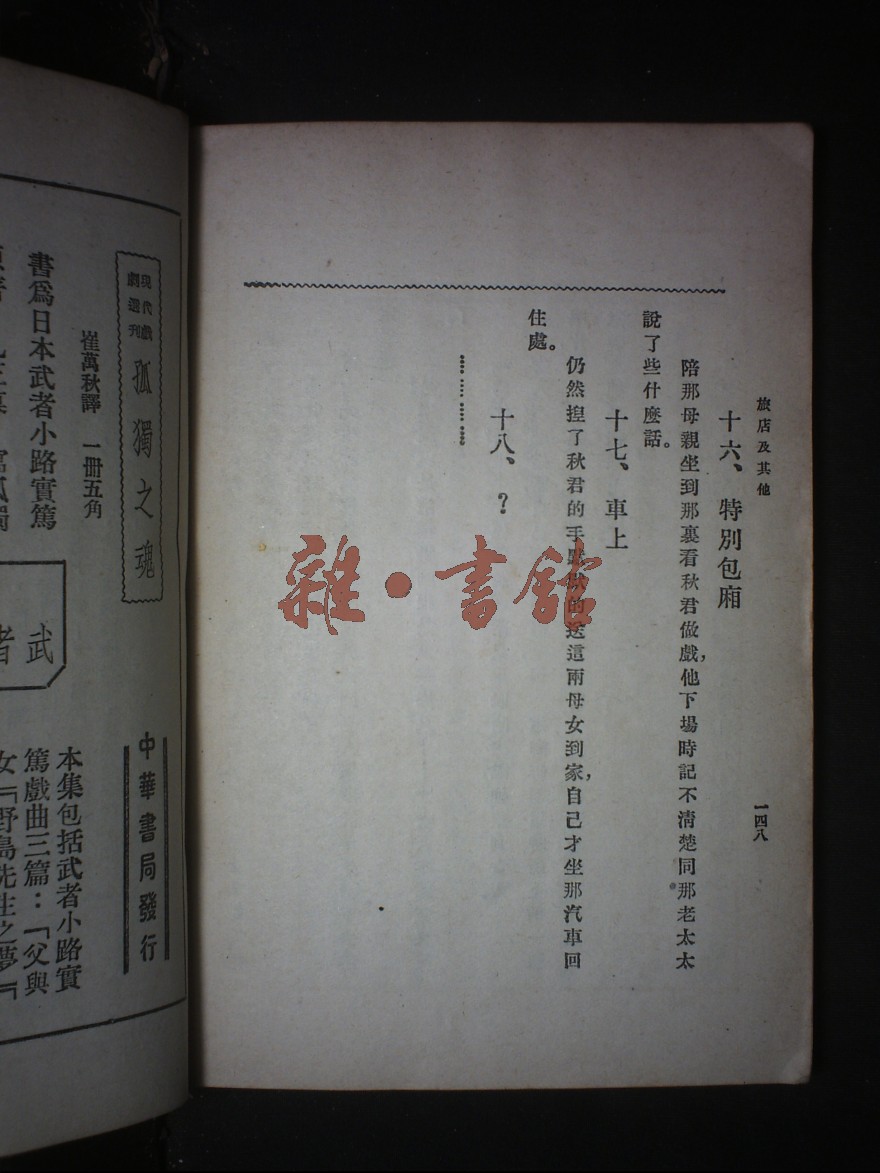 旅店及其他
一四八
十六、特別包廂
陪那母親坐到那裏看秋君做戲，他下場時記不清楚同那老太太
說了些什麼話。
十七、車上
仍然揑了秋君的手默默的送這兩母女到家，自己才坐那汽車回
住處。
十八、？
…………
雜·書館
中華書局發行
現代戲劇選刊
孤獨之魂
崔萬秋譯 一冊五角
書爲日本武者小路實篤
武者
本集包括武者小路實
篤戲曲三篇：「父與
女」「野島先生之夢」「